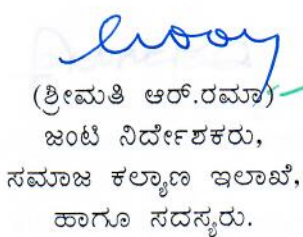 (ಶ್ರೀಮತಿ ಆರ್.ರಮಾ)
ಜಂಟಿ ನಿರ್ದೇಶಕರು,
ಸಮಾಜ ಕಲ್ಯಾಣ ಇಲಾಖೆ,
ಹಾಗೂ ಸದಸ್ಯರು.